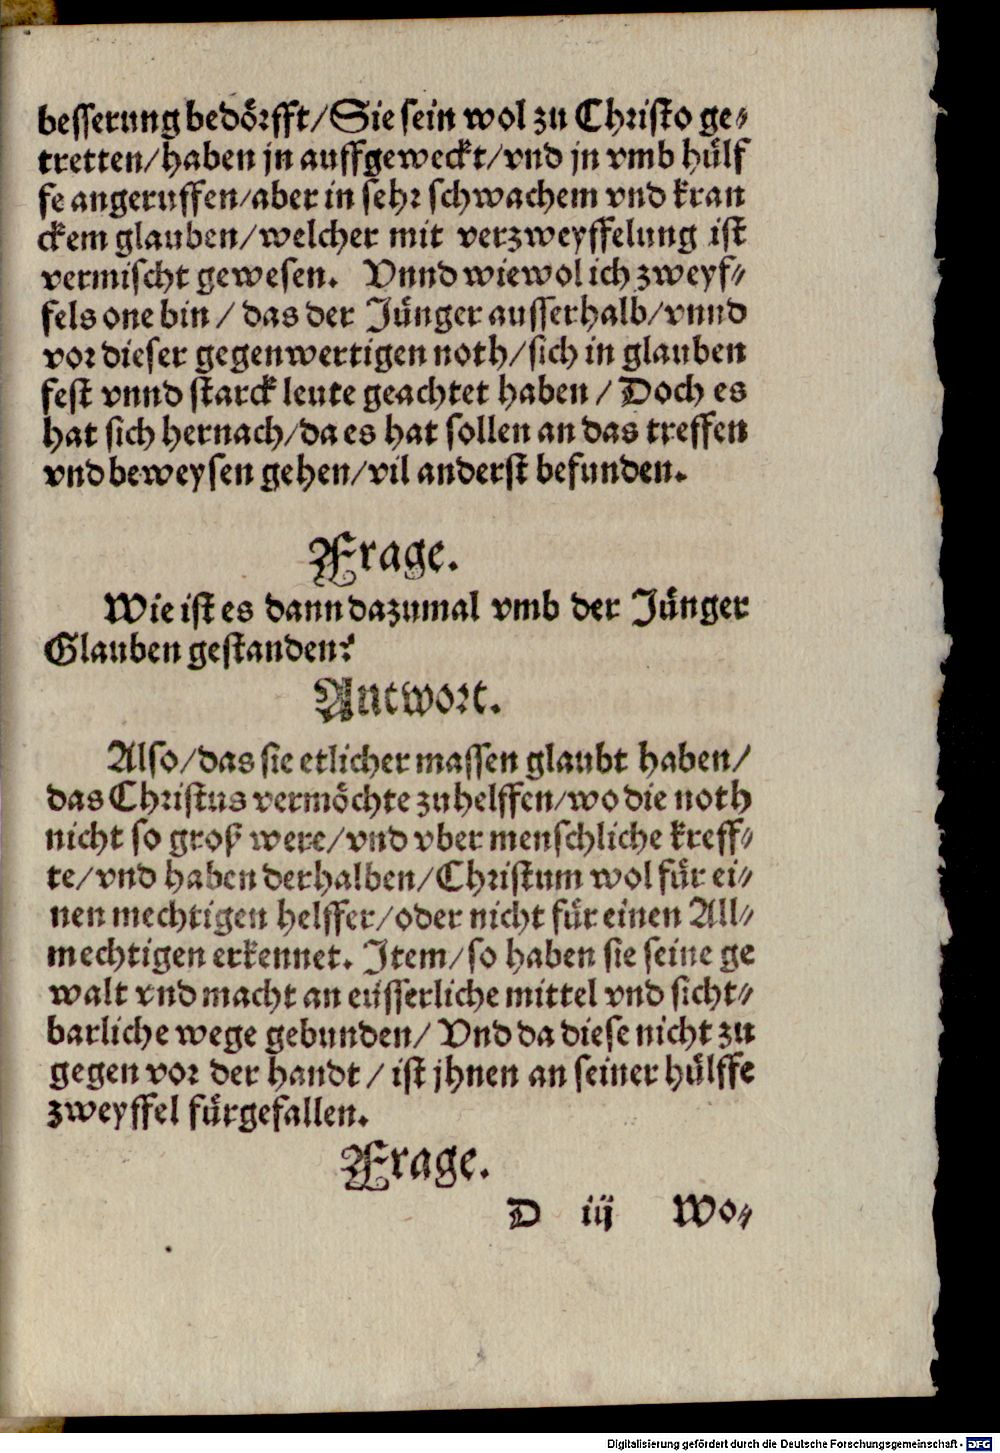 besserung bedörfft/Sie sein wol zu Christo ge-
tretten/haben jn auffgeweckt/vnd jn vmb hülf
fe angeruffen/aber in sehr schwachem vnd kran
ckem glauben/welcher mit verzweyffelung ist
vermischt gewesen. Vnnd wiewol ich zweyf-
fels one bin/ das der Jünger ausserhalb/vnnd
vor dieser gegenwertigen noth/sich in glauben
fest vnnd starck leute geachtet haben/ Doch es
hat sich hernach/da es hat sollen an das treffen
vnd beweysen gehen/vil anderst befunden.
Frage.
Wie ist es dann dazumal vmb der Jünger
Glauben gestanden?
Antwort.
Also/das sie etlicher massen glaubt haben/
das Christus vermöchte zu helffen/wo die noth
nicht so groß were/vnd vber menschliche kreff-
te/vnd haben derhalben/Christum wol für ei-
nen mechtigen helffer/oder nicht für einen All-
mechtigen erkennet. Item/so haben sie seine ge
walt vnd macht an eüsserliche mittel vnd sicht-
barliche wege gebunden/ Vnd da diese nicht zu
gegen vor der handt/ ist jhnen an seiner hülffe
zweyffel fürgefallen.
Frage.
D iij Wo-
Digitalisierung gefördert durch die Deutsche Forschungsgemeinschaft - DFG